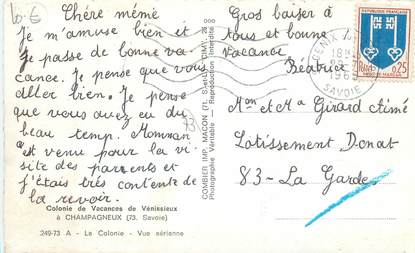 10 €
Chère mémé
Je m'amuse bien et
Je passe de bonne va
cance. Je pense que vous
aller bien. Je pense
que vous avez eu du
beau temp. Momman
est venue pour la vi
site des parents et
j'étais très contente de
la revoir.
Colonie de Vacances de Vénissieux
à CHAMPAGNEUX (73. Savoie)
249-73 A - La Colonie - Vue aérienne
COMBIER IMP. MACON (71. S.-et-L.) "CIM"
Photographie Véritable - Reproduction Interdite
Gros baiser à
tous et bonne
vacance
Béatrice
REPUBLIQUE FRANÇAISE
POSTES
0,25
MONT-DE-MARSAN
1969
SAVOIE
Mon et Ma Girard Aimé
Lotissement Donat
83 - La Garde